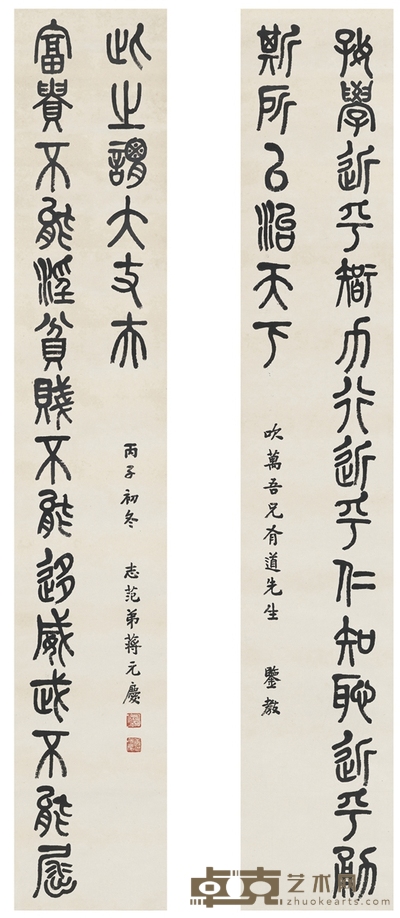 好學近乎智力行近乎仁知恥近乎勇
斯所以治天下
吹萬吾兄有道先生 鑒教
富貴不能淫貧賤不能移威武不能屈
此之謂大丈夫
丙子初冬 志范弟蔣元慶
卓克艺术网
zhuokearts.com